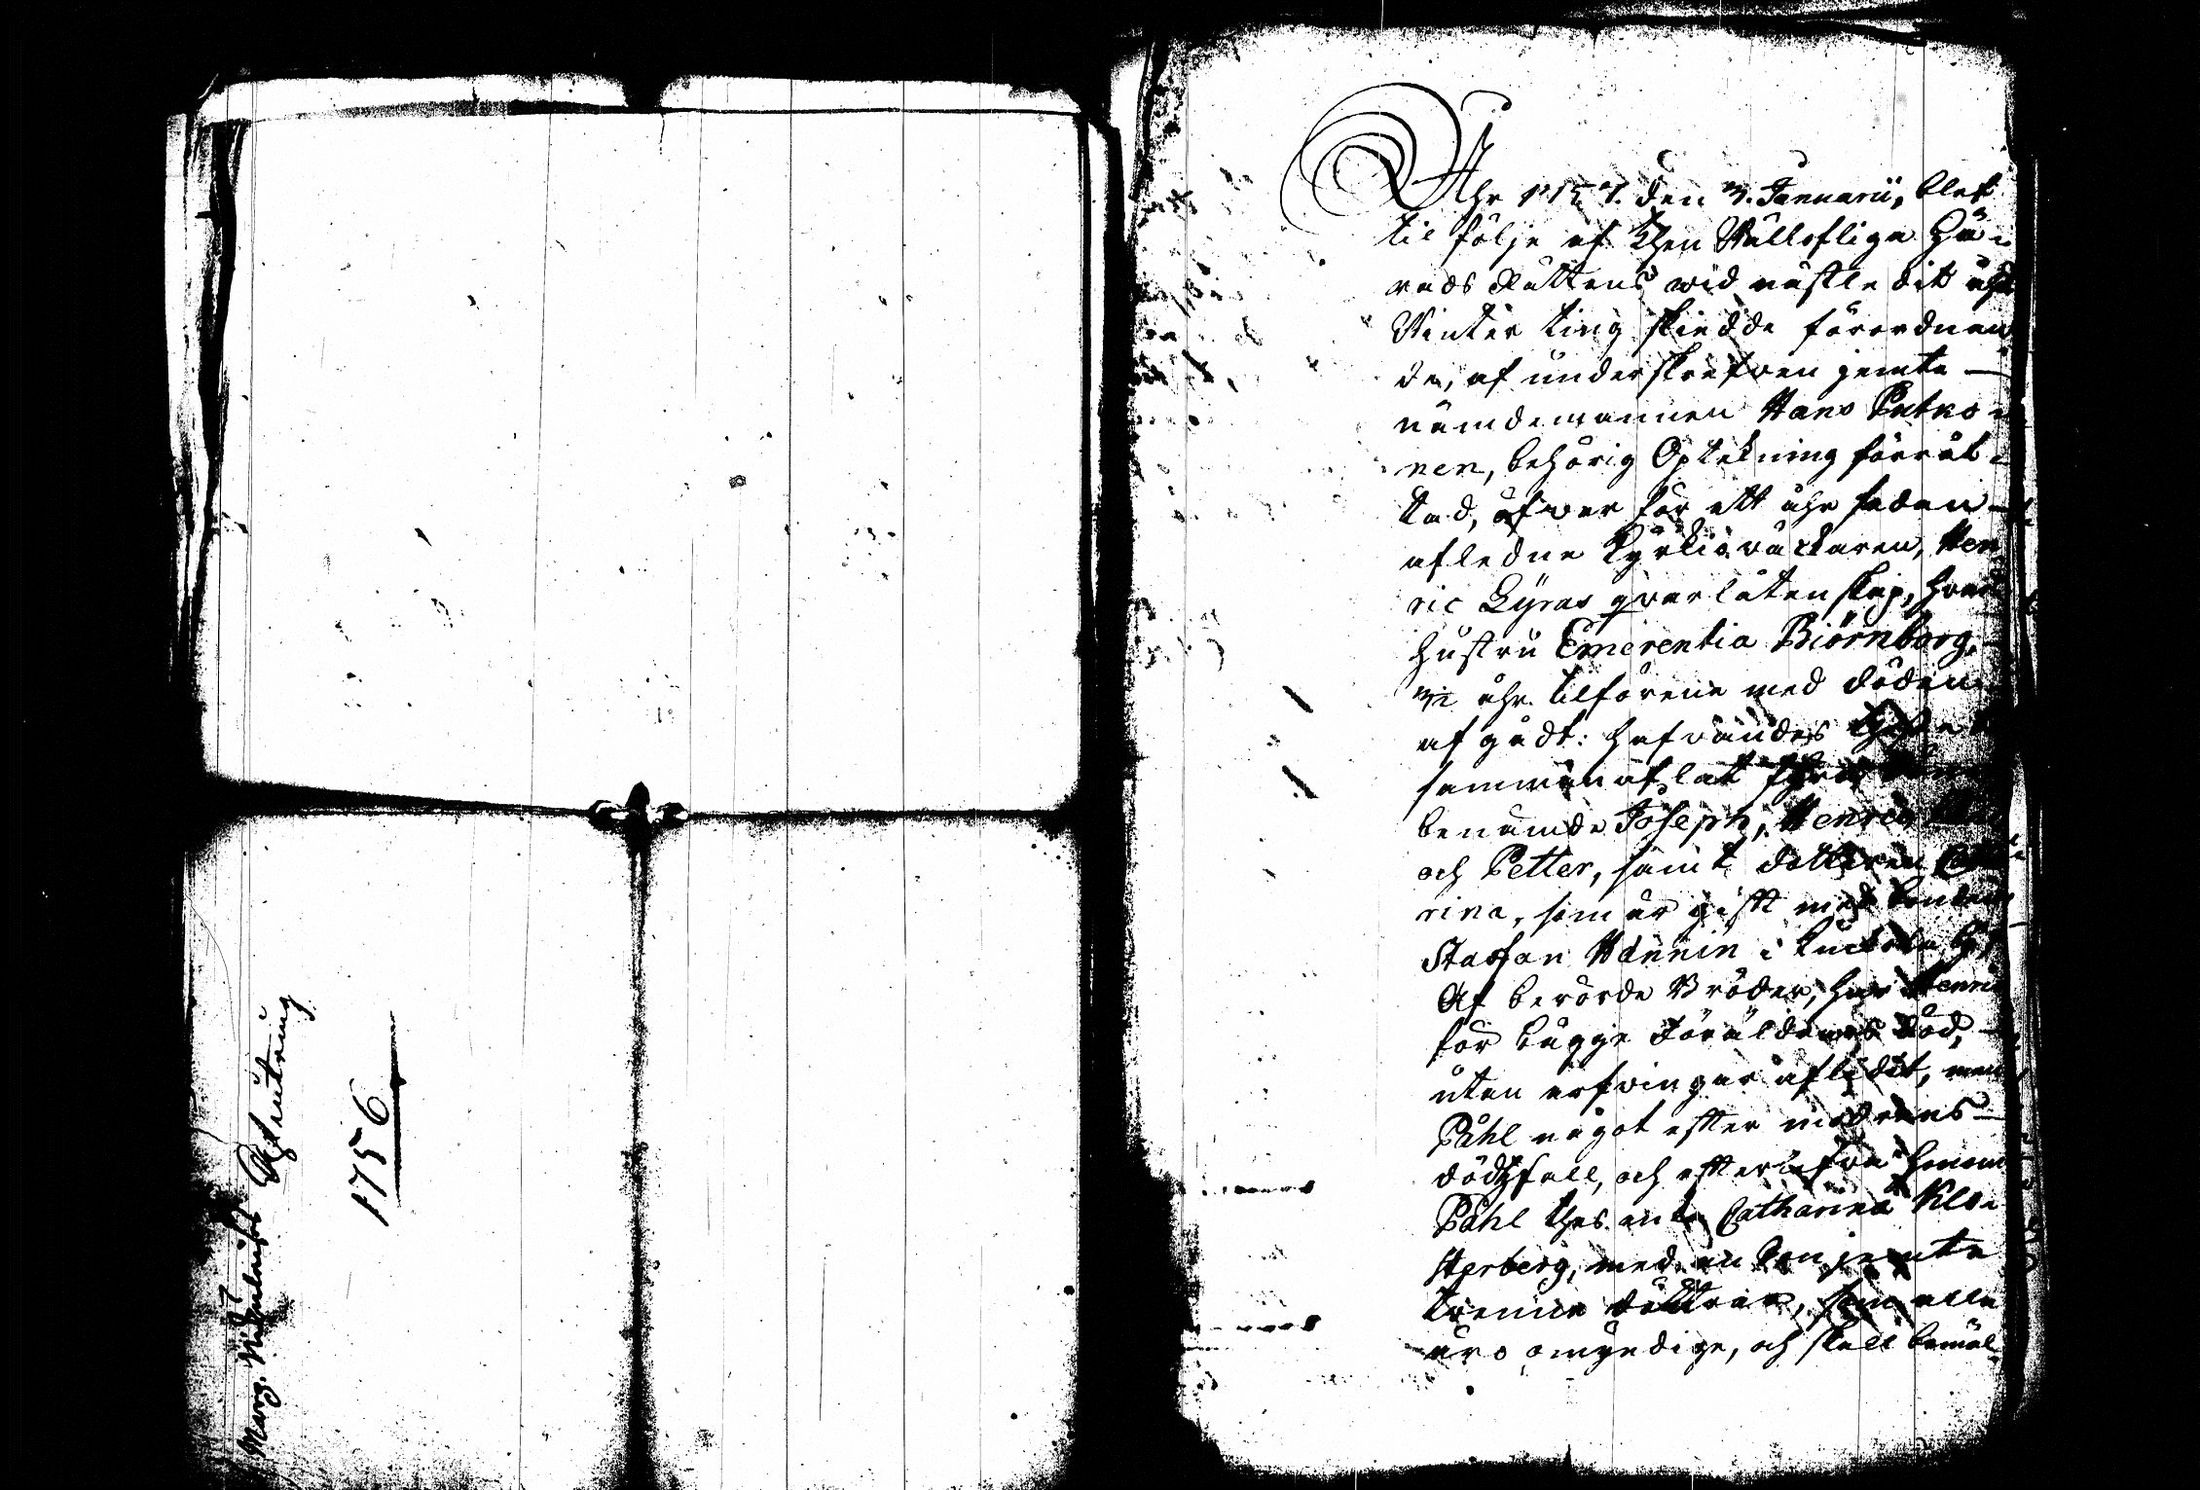 Marg. Afvitring
1756
Åhr 1757. den 3. Januarii, blef
til följe af then Wällofliga Hä-
rads Rättens wid nästledit åhrs
Winter ting skiedde förordnan
de, af underskrefwen jemte
nämdemannen Hans Putko-
nen, behörig Optekning förrät-
tad, öfwer för ett åhr sedan
afledne Kyrkiowäcktaren, Hen
ric Lyras qwarlåtenskap, hwars
hustru Emerentia Biörnborg,
åhr tilförene med döden
afgådt: hafwandes
sammanaflat
benämde Joseph, Henric
och Petter, samt dotteren Catha
rina, som är gift med bonden
Staffan Hännin i
Af berörde Bröder, har Henric
för bägge Föräldrarnes död,
utan arfwingar aflidit, men
Påhl något efter modrens
dödsfall, och efterlefwa honom
Påhl thes enka Catharina Klo-
sterberg, med en Son jemte
twenne döttrar, som alla
äro omyndige, och skall bemäl-